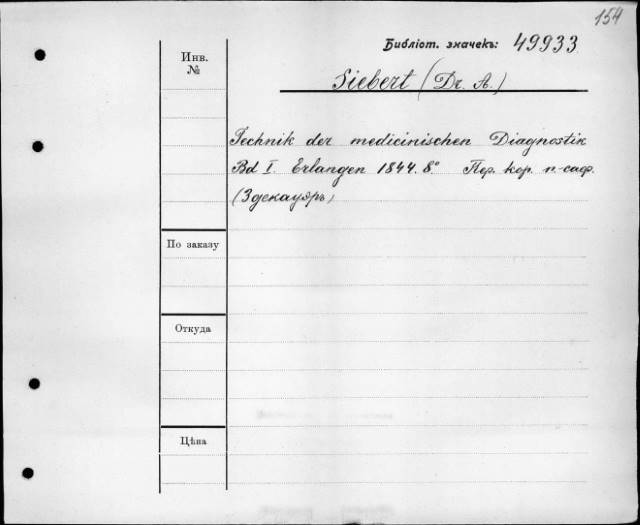 154
Библіот. значекъ: 49933
Инв.
№
Siebert (Dr. A.)
Technik der medicinischen Diagnostik
Bd I. Erlangen 1844. 8.° Пер. кор. п.-саф.
(Здекауэръ)
По заказу
Откуда
Цѣна